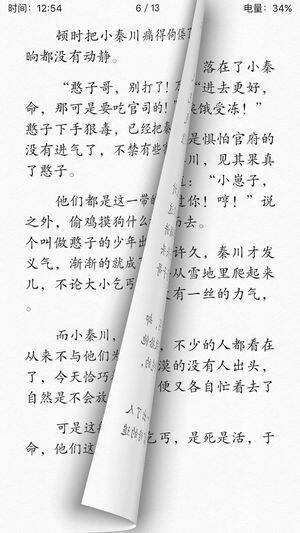 时间：12:54 6/13 电量：34%
顿时把小秦川痛得佝偻
晌都没有动静。
落在了小秦
“憨子哥，别打了！ “进去更好，
命，那可是要吃官司的！” 挨饿受冻！”
憨子下手狠毒，已经把 是惧怕官府的
没有进气了，不禁有些 川，见其果真
了憨子。 ：“小崽子，
他们都是这一带的 过你！哼！”说
之外，偷鸡摸狗什么 而去。
个叫做憨子的少年出 许久，秦川才发
义气，渐渐的就成 从雪地里爬起来
儿，不论大小乞丐 有一丝的力气，
。
而小秦川， 不少的人都看在
从来不与他们 漠的没有人出头，
了，今天恰巧 便又各自忙着去了
自然是不会放
可是这 乞丐，是死是活，于
命，他们这